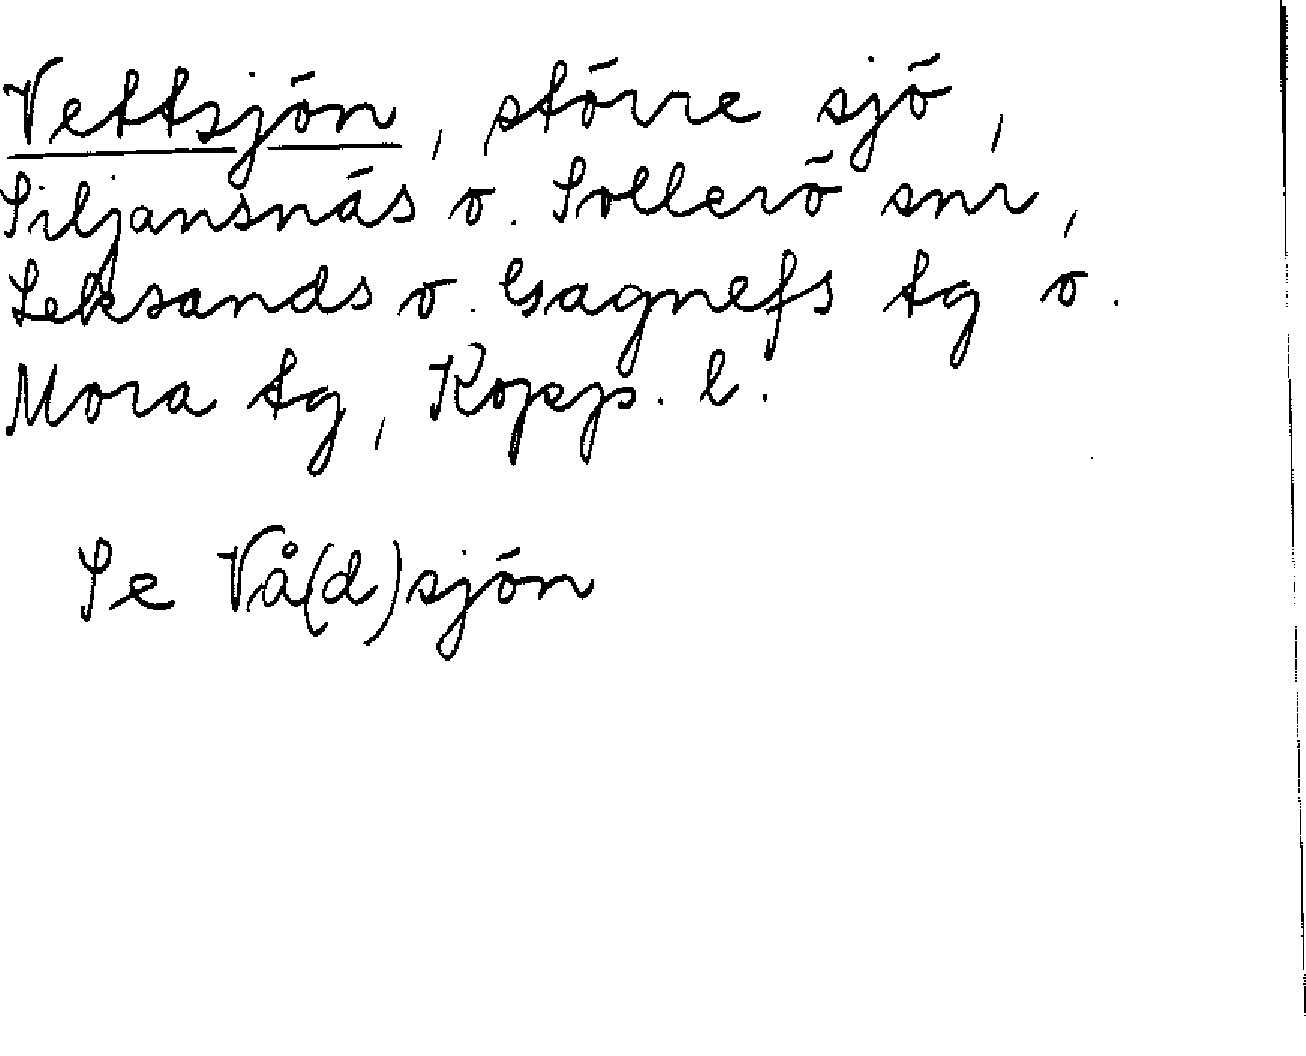 Vettsjön, större sjö,
Siljansnäs o. Sollerö snr,
Leksands o. Gagnefs tg o.
Mora tg, Kopp. l.
Se Vå(d)sjön